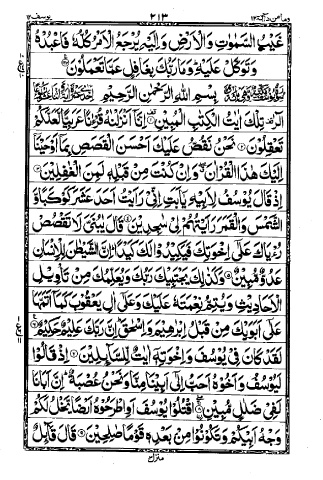 یوسف ۱۲ ۲۱۳ وما من دابة ۱۲
غَيْبُ السَّمٰوٰتِ وَالْاَرْضِ وَاِلَيْهِ يُرْجَعُ الْاَمْرُ كُلُّهٗ فَاعْبُدْهُ
وَتَوَكَّلْ عَلَيْهِ وَمَا رَبُّكَ بِغَافِلٍ عَمَّا تَعْمَلُوْنَ
بِسْمِ اللّٰهِ الرَّحْمٰنِ الرَّحِيْمِ
الٓرٰ تِلْكَ اٰيٰتُ الْكِتٰبِ الْمُبِيْنِ اِنَّاۤ اَنْزَلْنٰهُ قُرْءٰنًا عَرَبِيًّا لَّعَلَّكُمْ
تَعْقِلُوْنَ نَحْنُ نَقُصُّ عَلَيْكَ اَحْسَنَ الْقَصَصِ بِمَاۤ اَوْحَيْنَاۤ
اِلَيْكَ هٰذَا الْقُرْاٰنَ وَاِنْ كُنْتَ مِنْ قَبْلِهٖ لَمِنَ الْغٰفِلِيْنَ
اِذْ قَالَ يُوْسُفُ لِاَبِيْهِ يٰۤاَبَتِ اِنِّيْ رَاَيْتُ اَحَدَ عَشَرَ كَوْكَبًا وَّ
الشَّمْسَ وَالْقَمَرَ رَاَيْتُهُمْ لِيْ سٰجِدِيْنَ قَالَ يٰبُنَيَّ لَا تَقْصُصْ
رُءْيَاكَ عَلٰۤى اِخْوَتِكَ فَيَكِيْدُوْا لَكَ كَيْدًا اِنَّ الشَّيْطٰنَ لِلْاِنْسَانِ
عَدُوٌّ مُّبِيْنٌ وَكَذٰلِكَ يَجْتَبِيْكَ رَبُّكَ وَيُعَلِّمُكَ مِنْ تَاْوِيْلِ
الْاَحَادِيْثِ وَيُتِمُّ نِعْمَتَهٗ عَلَيْكَ وَعَلٰۤى اٰلِ يَعْقُوْبَ كَمَاۤ اَتَمَّهَا
عَلٰۤى اَبَوَيْكَ مِنْ قَبْلُ اِبْرٰهِيْمَ وَاِسْحٰقَ اِنَّ رَبَّكَ عَلِيْمٌ حَكِيْمٌ
لَقَدْ كَانَ فِيْ يُوْسُفَ وَاِخْوَتِهٖۤ اٰيٰتٌ لِّلسَّآئِلِيْنَ اِذْ قَالُوْا
لَيُوْسُفُ وَاَخُوْهُ اَحَبُّ اِلٰۤى اَبِيْنَا مِنَّا وَنَحْنُ عُصْبَةٌ اِنَّ اَبَانَا
لَفِيْ ضَلٰلٍ مُّبِيْنٍ اقْتُلُوْا يُوْسُفَ اَوِ اطْرَحُوْهُ اَرْضًا يَّخْلُ لَكُمْ
وَجْهُ اَبِيْكُمْ وَتَكُوْنُوْا مِنْ بَعْدِهٖ قَوْمًا صٰلِحِيْنَ قَالَ قَآئِلٌ